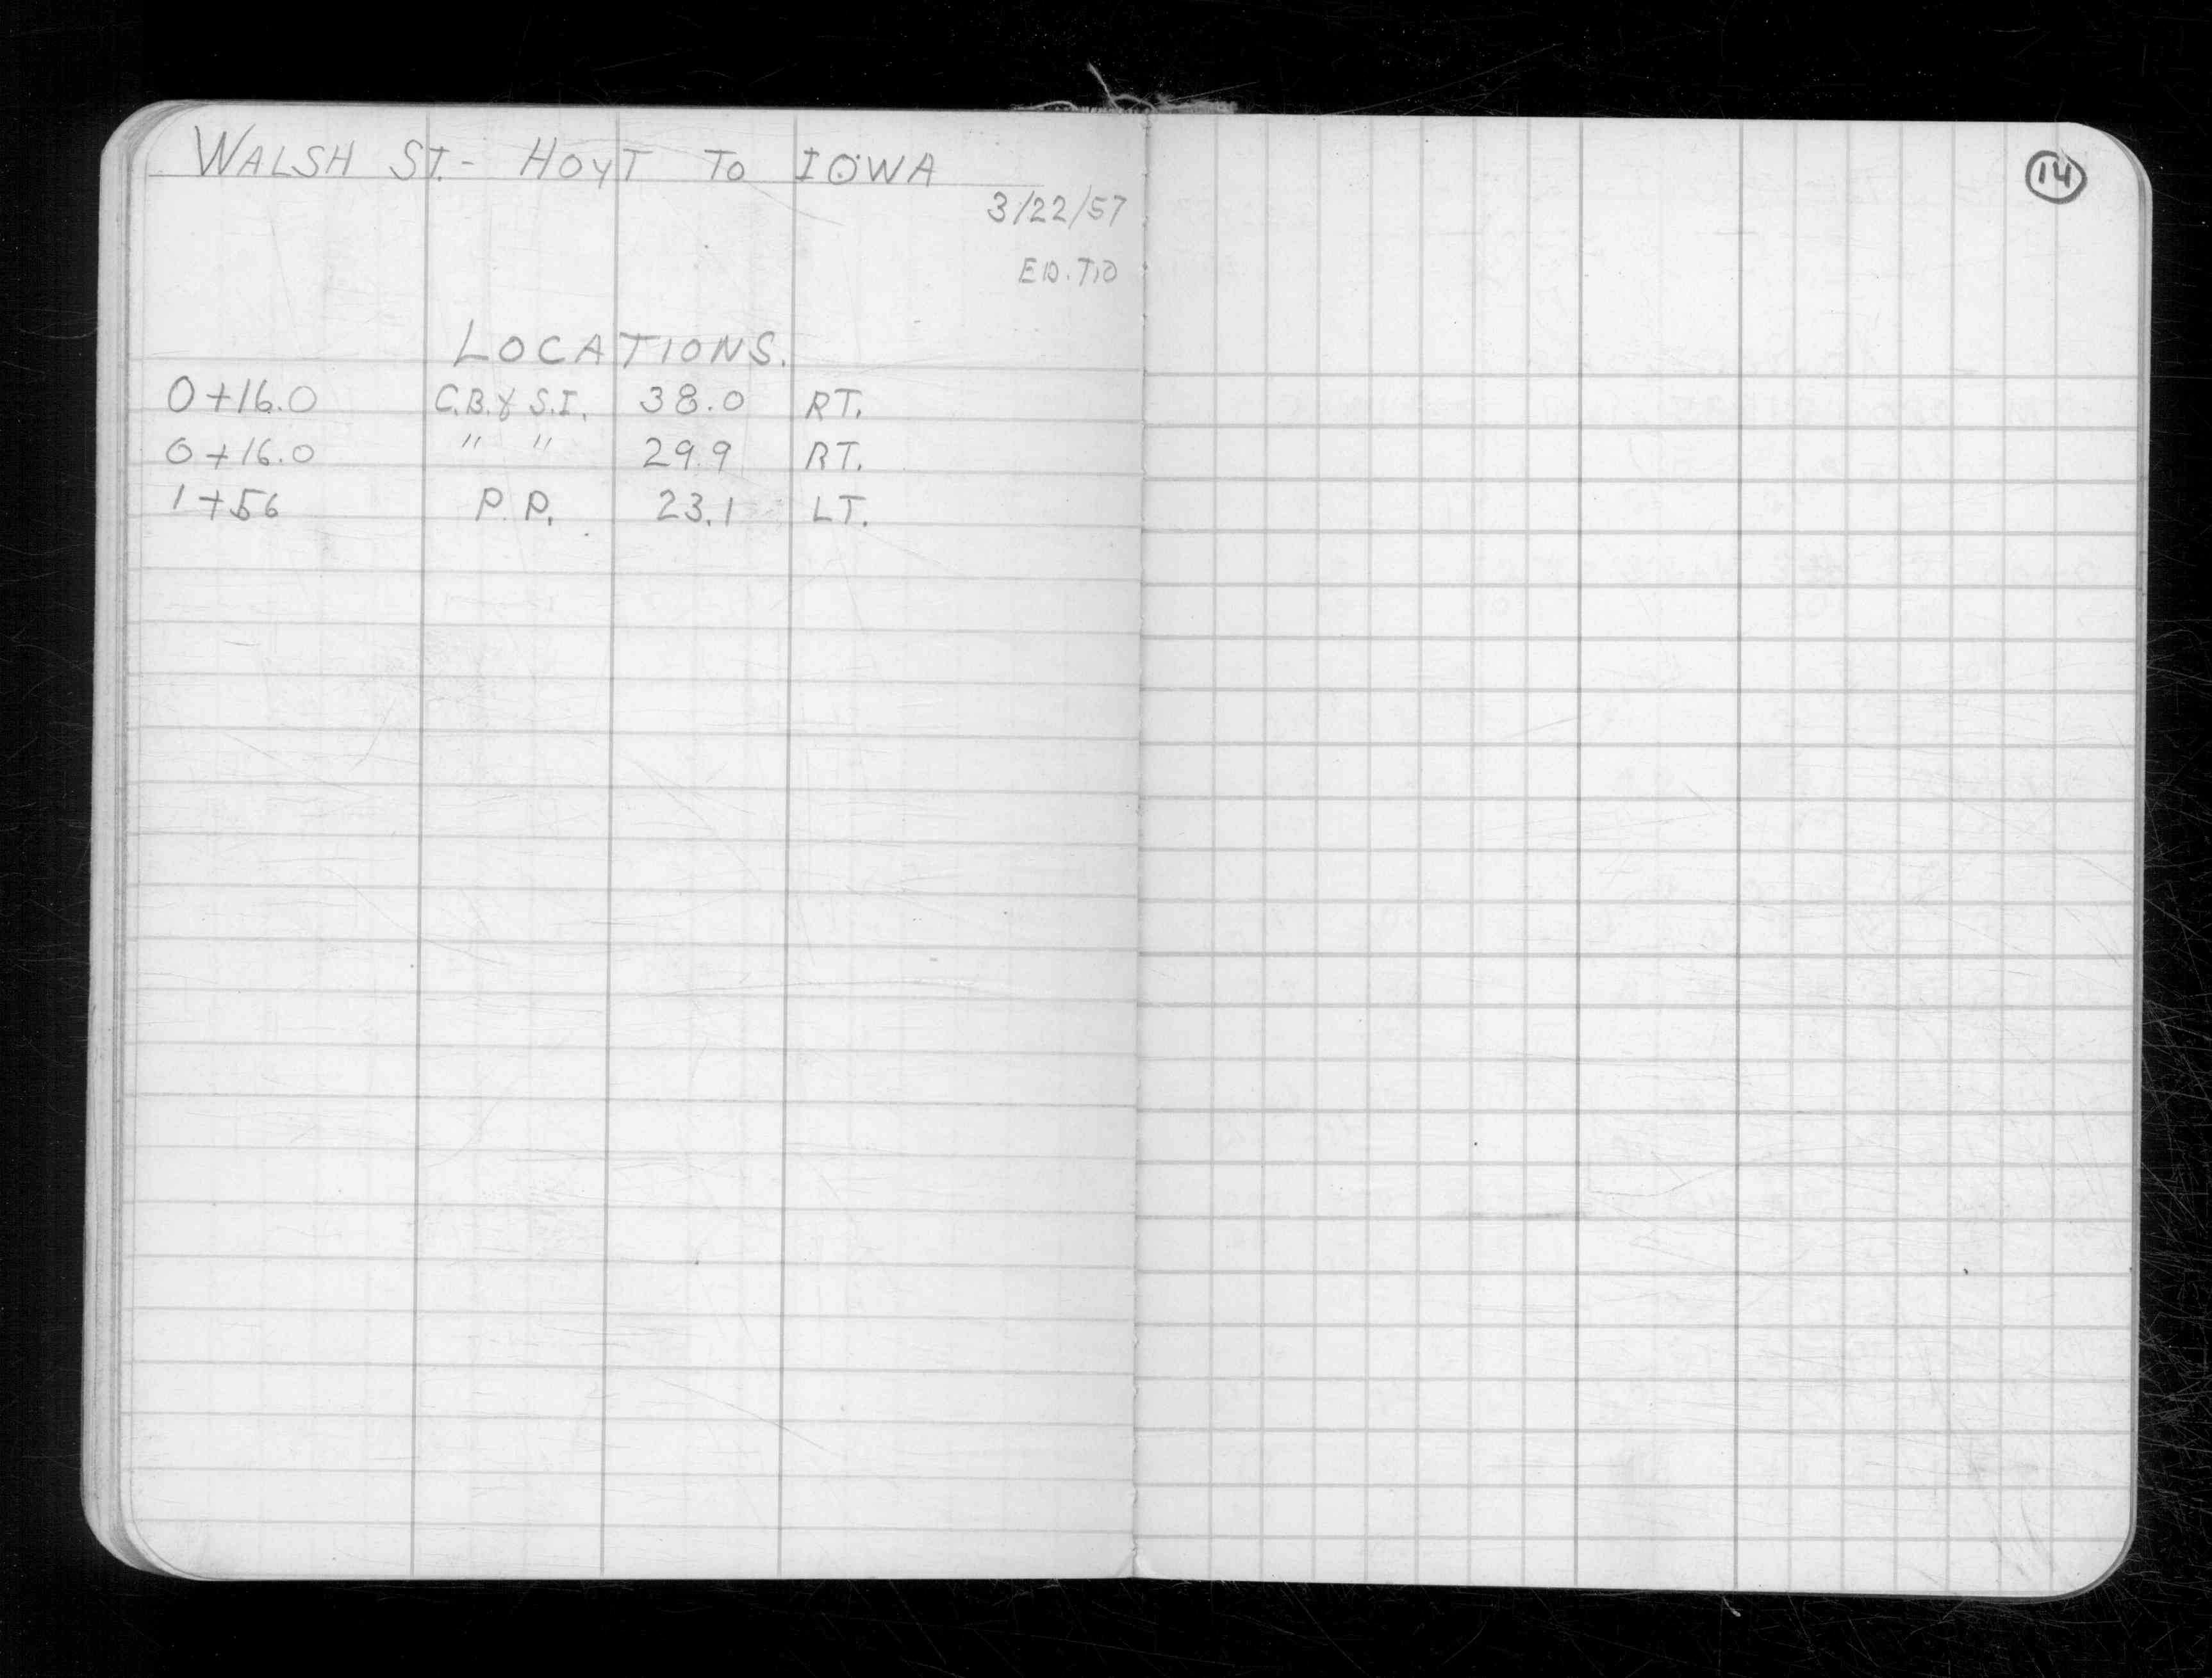 WALSH ST. - HOYT TO IOWA
14
3/22/57
LOCATIONS.
0+16.0 C.B. & S.I. 38.0 RT.
0+16.0 " " 29.9 RT.
1+56 P.P. 23.1 LT.